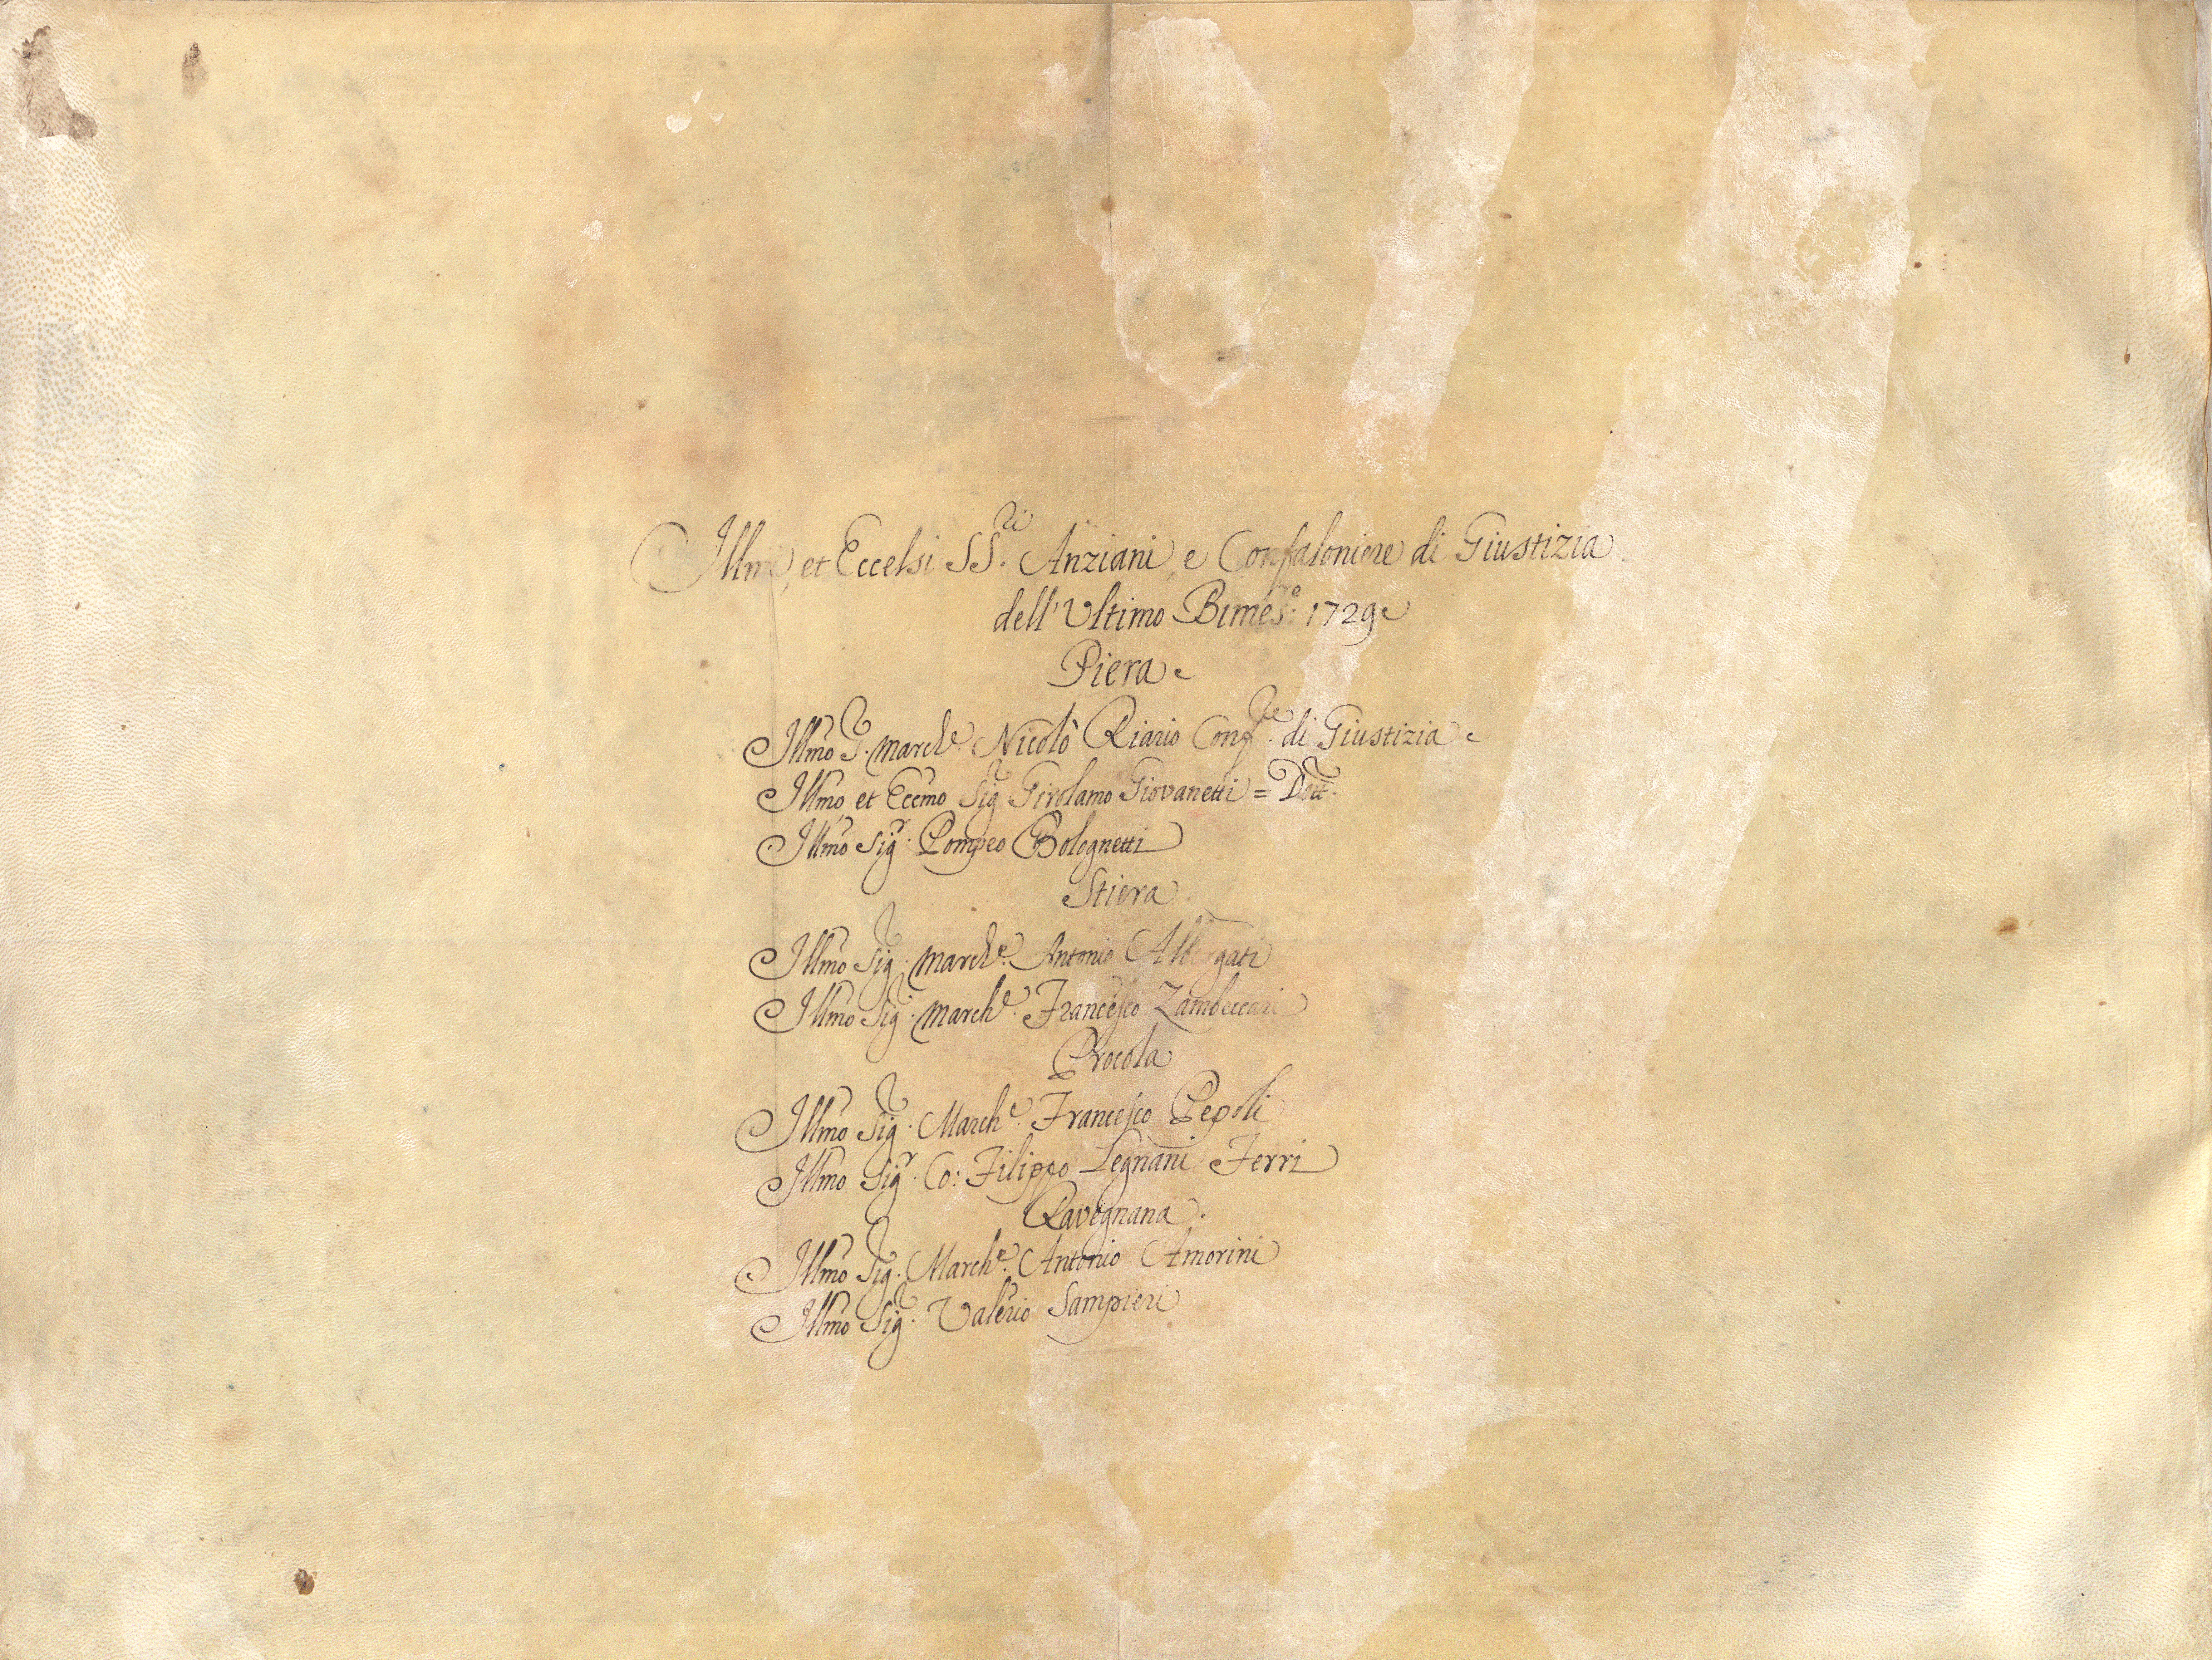 Illmi, et Eccelsi SS.ri Anziani, e Confaloniere di Giustizia
dell'Ultimo Bimes:re 1729
Piera
Illmo S.r March.e Nicolò Riario Conf.re di Giustizia
Illmo, et Eccmo Sig.r Girolamo Giovanetti = Dott.r
Illmo Sig.r Pompeo Bolognetti
Stiera
Illmo Sig.r March.e Antonio Albergati
Illmo Sig.r March.e Francesco Zambeccari
Procola
Illmo Sig.r March.e Francesco Pepoli
Illmo Sig.r Co: Filippo Legnani Ferri
Ravegnana.
Illmo Sig.r March.e Antonio Amorini
Illmo Sig.r Valerio Sampieri